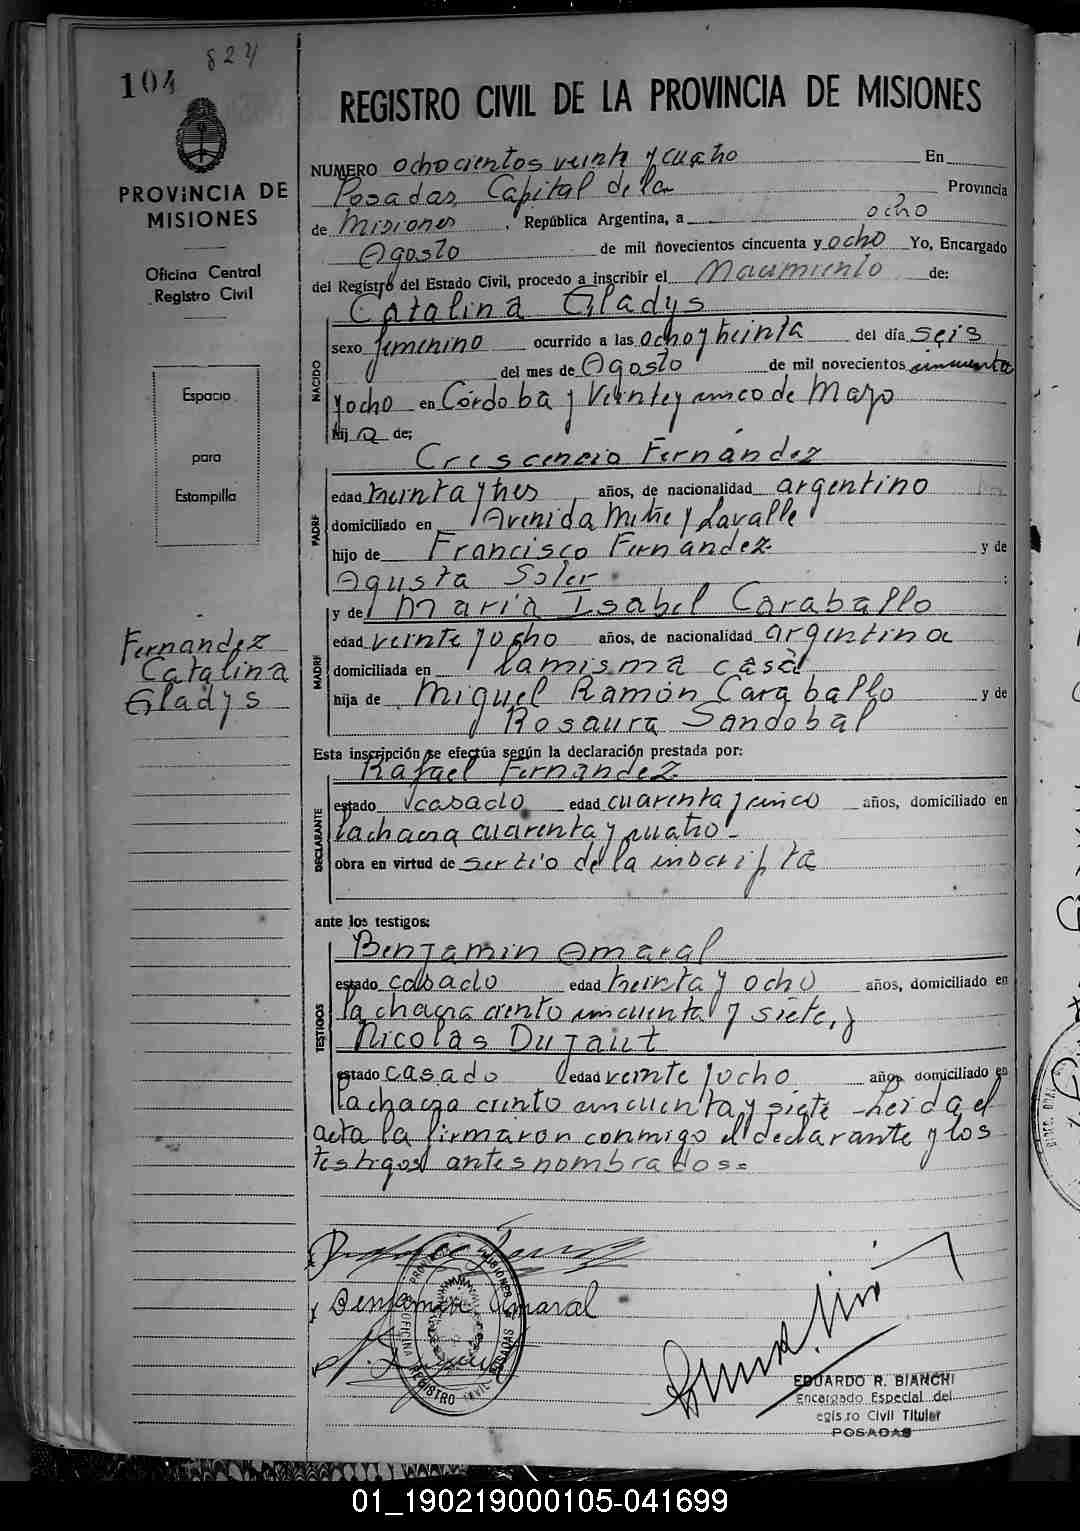 824
104
PROVINCIA DE
MISIONES
Oficina Central
Registro Civil
Espacio
para
Estampilla
Fernandez
Catalina
Gladys
REGISTRO CIVIL DE LA PROVINCIA DE MISIONES
NUMERO ochocientos veinte y cuatro En
Posadas, Capital de la Provincia
de Misiones, República Argentina, a ocho
Agosto de mil novecientos cincuenta y ocho Yo, Encargado
del Registro del Estado Civil, procedo a inscribir el Nacimiento de:
Catalina Gladys
NACIDO
sexo femenino ocurrido a las ocho y treinta del día seis
del mes de Agosto de mil novecientos cincuenta
y ocho en Córdoba y Veinte y cinco de Mayo
hij a de:
PADRE
Crescencio Fernández
edad treinta y tres años, de nacionalidad argentino
domiciliado en Avenida Mitre y Lavalle
hijo de Francisco Fernandez y de
Agusta Soler :
MADRE
y de Maria Isabel Caraballo
edad veinte y ocho años, de nacionalidad argentina
domiciliada en la misma casa
hija de Miguel Ramón Caraballo y de
Rosaura Sandobal
Esta inscripción se efectúa según la declaración prestada por:
DECLARANTE
Rafael Fernandez
estado casado edad cuarenta y cinco años, domiciliado en
la chacra cuarenta y cuatro
obra en virtud de ser tio de la inscripta
ante los testigos:
TESTIGOS
Benjamin Amaral
estado casado edad treinta y ocho años, domiciliado en
la chacra ciento cincuenta y siete, y
Nicolás Dujaut
estado casado edad veinte y ocho años, domiciliado en
la chacra ciento cincuenta y siete - Leida el
acta la firmaron conmigo el declarante y los
testigos antes nombrados=
Benjamin Amaral
PROVINCIA MISIONES
OFICINA REGISTRO CIVIL POSADAS
EDUARDO R. BIANCHI
Encargado Especial del
egistro Civil Titular
POSADAS
01_190219000105-041699